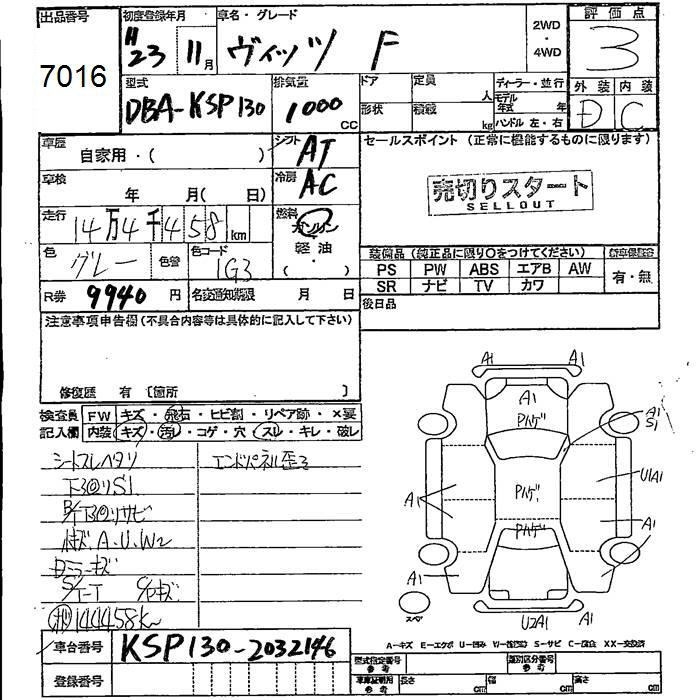 出品番号
7016
初度登録年月
H23 11月
車名・グレード
ヴィッツ F
2WD
・
4WD
評価点
3
型式
DBA-KSP130
排気量
1000 cc
ドア
形状
定員 人
積載 kg
ディーラー・並行
モデル年式 年
ハンドル 左・右
外装 内装
D C
車歴
自家用・( )
シフト
AT
車検
年 月( 日)
冷房
AC
セールスポイント (正常に機能するものに限ります)
売切りスタート
SELLOUT
走行
14万4千458km
燃料
ガソリン
軽油
( ・ )
色
グレー
色替
色コード
1G3
装備品 (純正品に限り○をつけてください)
PS PW ABS エアB AW
SR ナビ TV カワ
新車保証書
有・無
R券 9940 円
名変通知期限 月 日
後日品
注意事項申告欄(不具合内容等は具体的に記入して下さい)
修復歴 有 〔箇所 〕
検査員 FW キズ・飛石・ヒビ割・リペア跡・×要
記入欄 内装 キズ・汚レ・コゲ・穴・スレ・キレ・破レ
シートスレヘタリ
エンドパネル歪ミ
下回りS1
下回りサビ
キズ.A.U.W2
ミラーキズ
144458km
A1 A1
A1
Pハゲ
A1
S1
Pハゲ
U1A1
A1
A1
Pハゲ
A1
A1
スペア
U2A1
A-キズ E-エクボ U-凹み W-波 S-サビ C-腐食 XX-交換済
車台番号 KSP130-2032146
登録番号
型式指定番号 参考
類別区分番号 参考
車庫証明用 参考
長さ cm
幅 cm
高さ cm